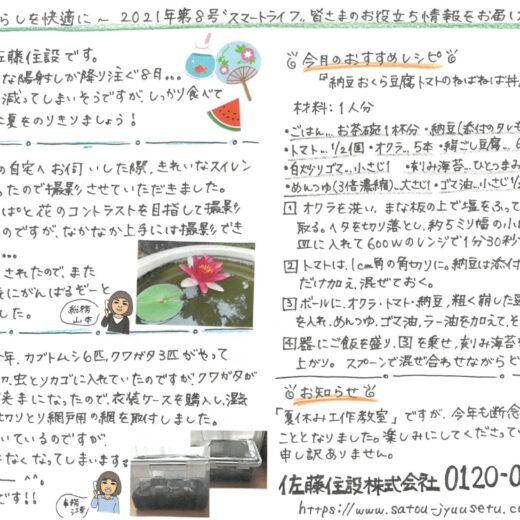 らしを快適に〜 2021年第8号 スマートライフ 皆さまのお役立ち情報をお届け
佐藤住設です。
な陽射しが降り注ぐ8月...
減ってしまいそうですが、しっかり食べて
夏をのりきりましょう!
の自宅へお伺いした際、きれいなスイレン
ったので撮影させていただきました。
ぱと花のコントラストを目指して撮影
のですが、なかなか上手には撮影でき
されたので、また
にがんばるぞーと
した。
総務
山本
年、カブトムシ6匹、クワガタ3匹がやって
カ、虫とりカゴに入れていたのですが、クワガタが
来まになったので、衣装ケースを購入し、
切りとり網戸用の網を取付しました。
いているのですが、
なくなってしまいます
ーー ^^。
です!!
事務
今月のおすすめレシピ
『納豆おくら豆腐トマトのねばねば丼
材料:1人分
・ごはん...お茶碗1杯分 ・納豆(添付のタレも
・トマト...1/2個 ・オクラ...5本 ・絹ごし豆腐...
・白炒りゴマ...小さじ1 ・刻み海苔...ひとつまみ
・めんつゆ(3倍濃縮)...大さじ1 ・ゴマ油...小さじ1/
1 オクラを洗い、まな板の上で塩をふって
取る。ヘタを切り落とし、約5ミリ幅の小
皿に入れて600Wのレンジで1分30秒
2 トマトは、1cm角の角切りに。納豆は添付
だけ加え、混ぜておく。
3 ボールに、オクラ・トマト・納豆、粗く崩した豆
を入れ、めんつゆ、ゴマ油、ラー油を加えて、そ
4 器にご飯を盛り、3を乗せ、刻み海苔を
上がり。 スプーンで混ぜ合わせながらど
お知らせ
「夏休み工作教室」ですが、今年も断念
こととなりました。楽しみにしてくださってい
申し訳ありません。
佐藤住設株式会社 0120-0
https://www.satou-jyuusetu.co